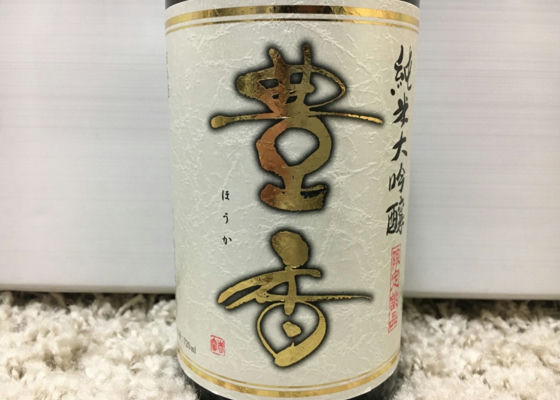 純米大吟醸
限定品
豊香
ほうか
720ml